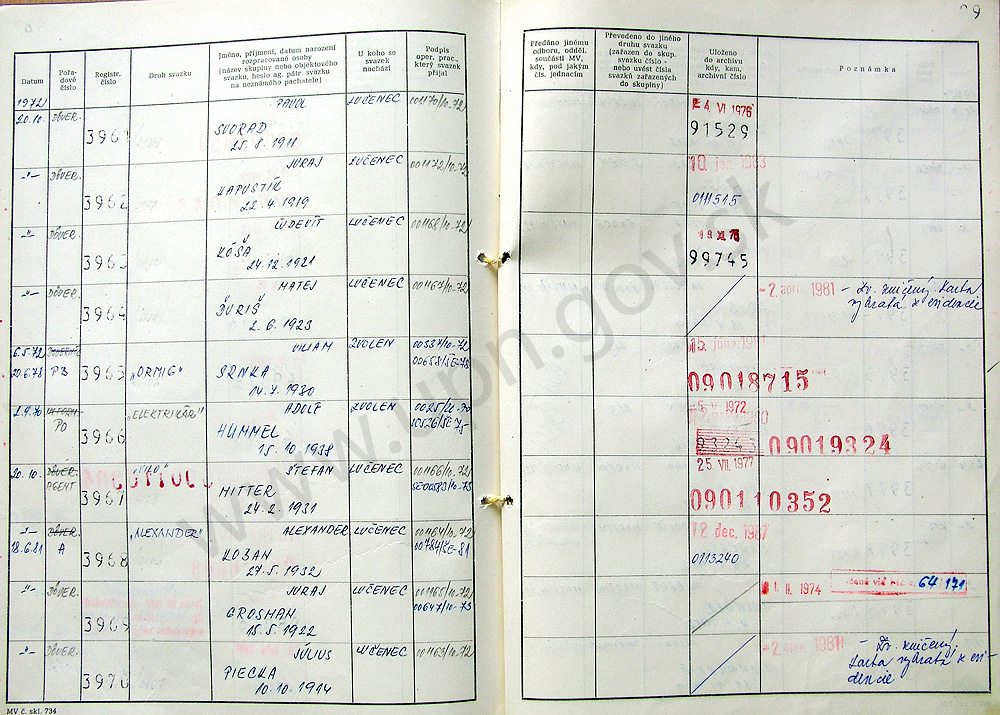 9
Datum
Pořadové číslo
Registr. číslo
Druh svazku
Jméno, příjmení, datum narození
rozpracované osoby
(název skupiny nebo objektového
svazku, heslo ag. pátr. svazku
na neznámého pachatele)
U koho se
svazek
nachází
Podpis
oper. prac.,
který svazek
přijal
Předáno jinému
odboru, odděl.
součásti MV,
kdy, pod jakým
čís. jednacím
Převedeno do jiného
druhu svazku
(zařazen do skup.
svazku číslo -
nebo uvést čísla
svazků zařazených
do skupiny)
Uloženo
do archivu
kdy, kam,
archivní číslo
Poznámka
1972
20.10. DÔVER. 3961 PAVOL LUČENEC 001170/10-72
SVORAD
25. 8. 1911
24. VI 1976
91529
-"- DÔVER. 3962 JURAJ LUČENEC 001172/10-72
KAPUSTÍK
22. 4. 1919
10. jan. 1983
0111515
-"- DÔVER. 3963 ĽUDEVÍT LUČENEC 001168/10-72
KÓŠA
24. 12. 1921
99745
-"- DÔVER. 3964 MATEJ LUČENEC 001167/10-72
ĎURIŠ
2. 6. 1923
-2. apr. 1981 - Dr. zničený, karta
vybratá z evidencie
6.5.72 3965 VILIAM ZVOLEN 00337/10-72
20.6.78 PS "ORMIG" SRNKA 00658/SE-78
14. 7. 1930
15. júna
09018715
2.9.70 3966 "ELEKTRIKÁR" ADOLF ZVOLEN 0025/10-70
PO HUMMEL
15. 10. 1938
V. 1972
93243 09019324
20.10. DÔVER. 3967 ŠTEFAN LUČENEC 001166/10-72
AGENT MITTER
24. 2. 1931
25 VII. 1977
090110352
-"- DÔVER. 3968 "ALEXANDER" ALEXANDER LUČENEC 001164/10-72
18.6.81 A LOBAN 00784/SE-81
27. 5. 1932
12. dec. 1987
0113240
-"- DÔVER. 3969 JURAJ LUČENEC 001165/10-72
GROSMAN 00647/10-73
15. 5. 1922
II. 1974 64 171
-"- DÔVER. 3970 JÚLIUS LUČENEC 001163/10-72
PIECKA
10. 10. 1914
-2. apr. 1981 - Dr. zničený,
karta vybratá z evi-
dencie
MV č. skl. 734
www.upn.gov.sk